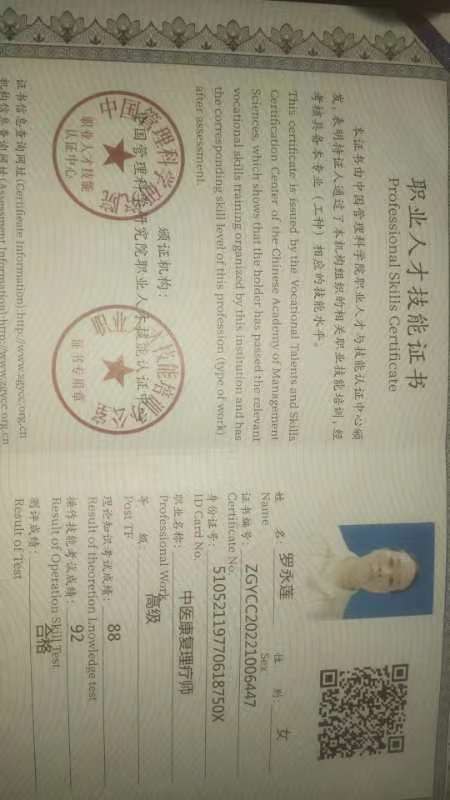 职业人才技能证书
Professional Skills Certificate
本证书由中国管理科学院职业人才与技能认证中心颁
发，表明持证人通过了本机构组织的相关职业技能培训，经
考核具备本专业（工种）相应的技能水平。
This certificate is issued by the Vocational Talents and Skills
Certification Center of the Chinese Academy of Management
Sciences, which shows that the holder has passed the relevant
vocational skills training organized by this institution and has
the corresponding skill level of this profession (type of work)
after assessment.
颁证机构：
中国管理科学研究院职业人才技能认证中心
职业人才技能
认证中心
证书专用章
证书信息查询网址(Certificate Information):http://www.zgycc.org.cn
机构信息备案网址(Assessment Information):http://www.zgycc.org.cn
姓 名 罗永莲 性 别 女
Name Sex
证书编号： ZGYCC20221006447
Certificate No.
身份证号： 51052119770618750X
ID Card No.
职业名称： 中医康复理疗师
Professional Work
等 级 高级
Post TF
理论知识考试成绩： 88
Result of theoretion Lnowledge test
操作技能考试成绩： 92
Result of Operation Skill Test
测评成绩： 合格
Result of Test